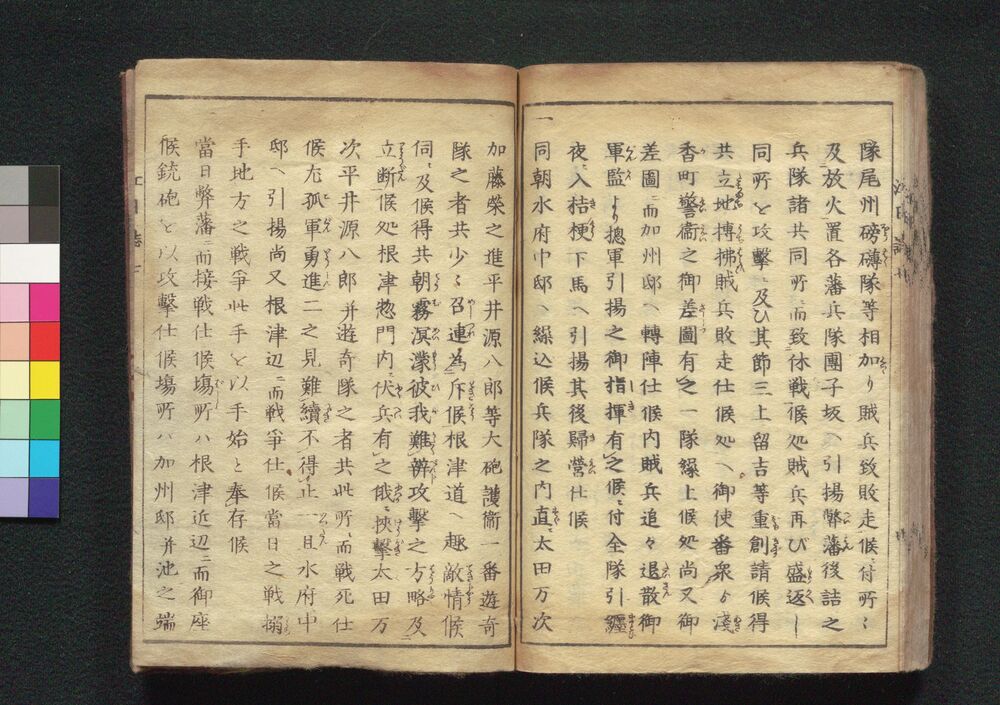 隊尾州磅礴隊等相加り賊兵致敗走候付所々
及放火置各藩兵隊團子坂ヘ引揚弊藩後詰之
兵隊諸共同所ニ而致休戦候処賊兵再び盛返し
同所を攻撃ニ及ひ其節三上留吉等重創請候得
共立地搏拂賊兵敗走仕候処ヘ御使番衆ゟ淺
香町警衞之御差圖有之一隊繰上候処尚又御
差圖ニ而加州邸ヘ轉陣仕候内賊兵追々退散御
軍監より總軍引揚之御指揮有之候ニ付全隊引纏
夜ニ入桔梗下馬ヘ引揚其後歸營仕候
一同朝水府中邸ヘ繰込候兵隊之内直ニ太田万次
加藤榮之進平井源八郎等大砲護衞一番遊奇
隊之者共少々召連為斥候根津道ヘ趣敵情候
伺ニ及候得共朝霧溟濛彼我難辨攻撃之方略及
立断候処根津惣門内ニ伏兵有之俄ニ挾擊太田万
次平井源八郎并遊奇隊之者共此所ニ而戦死仕
候尤孤軍勇進二之見難續不得止一旦水府中
邸ヘ引揚尚又根津辺ニ而戦爭仕候當日之戦搦
手地方之戦爭此手を以手始と奉存候
當日弊藩ニ而接戦仕候場所ハ根津近辺ニ而御座
候銃砲を以攻撃仕候場所ハ加州邸并池之端